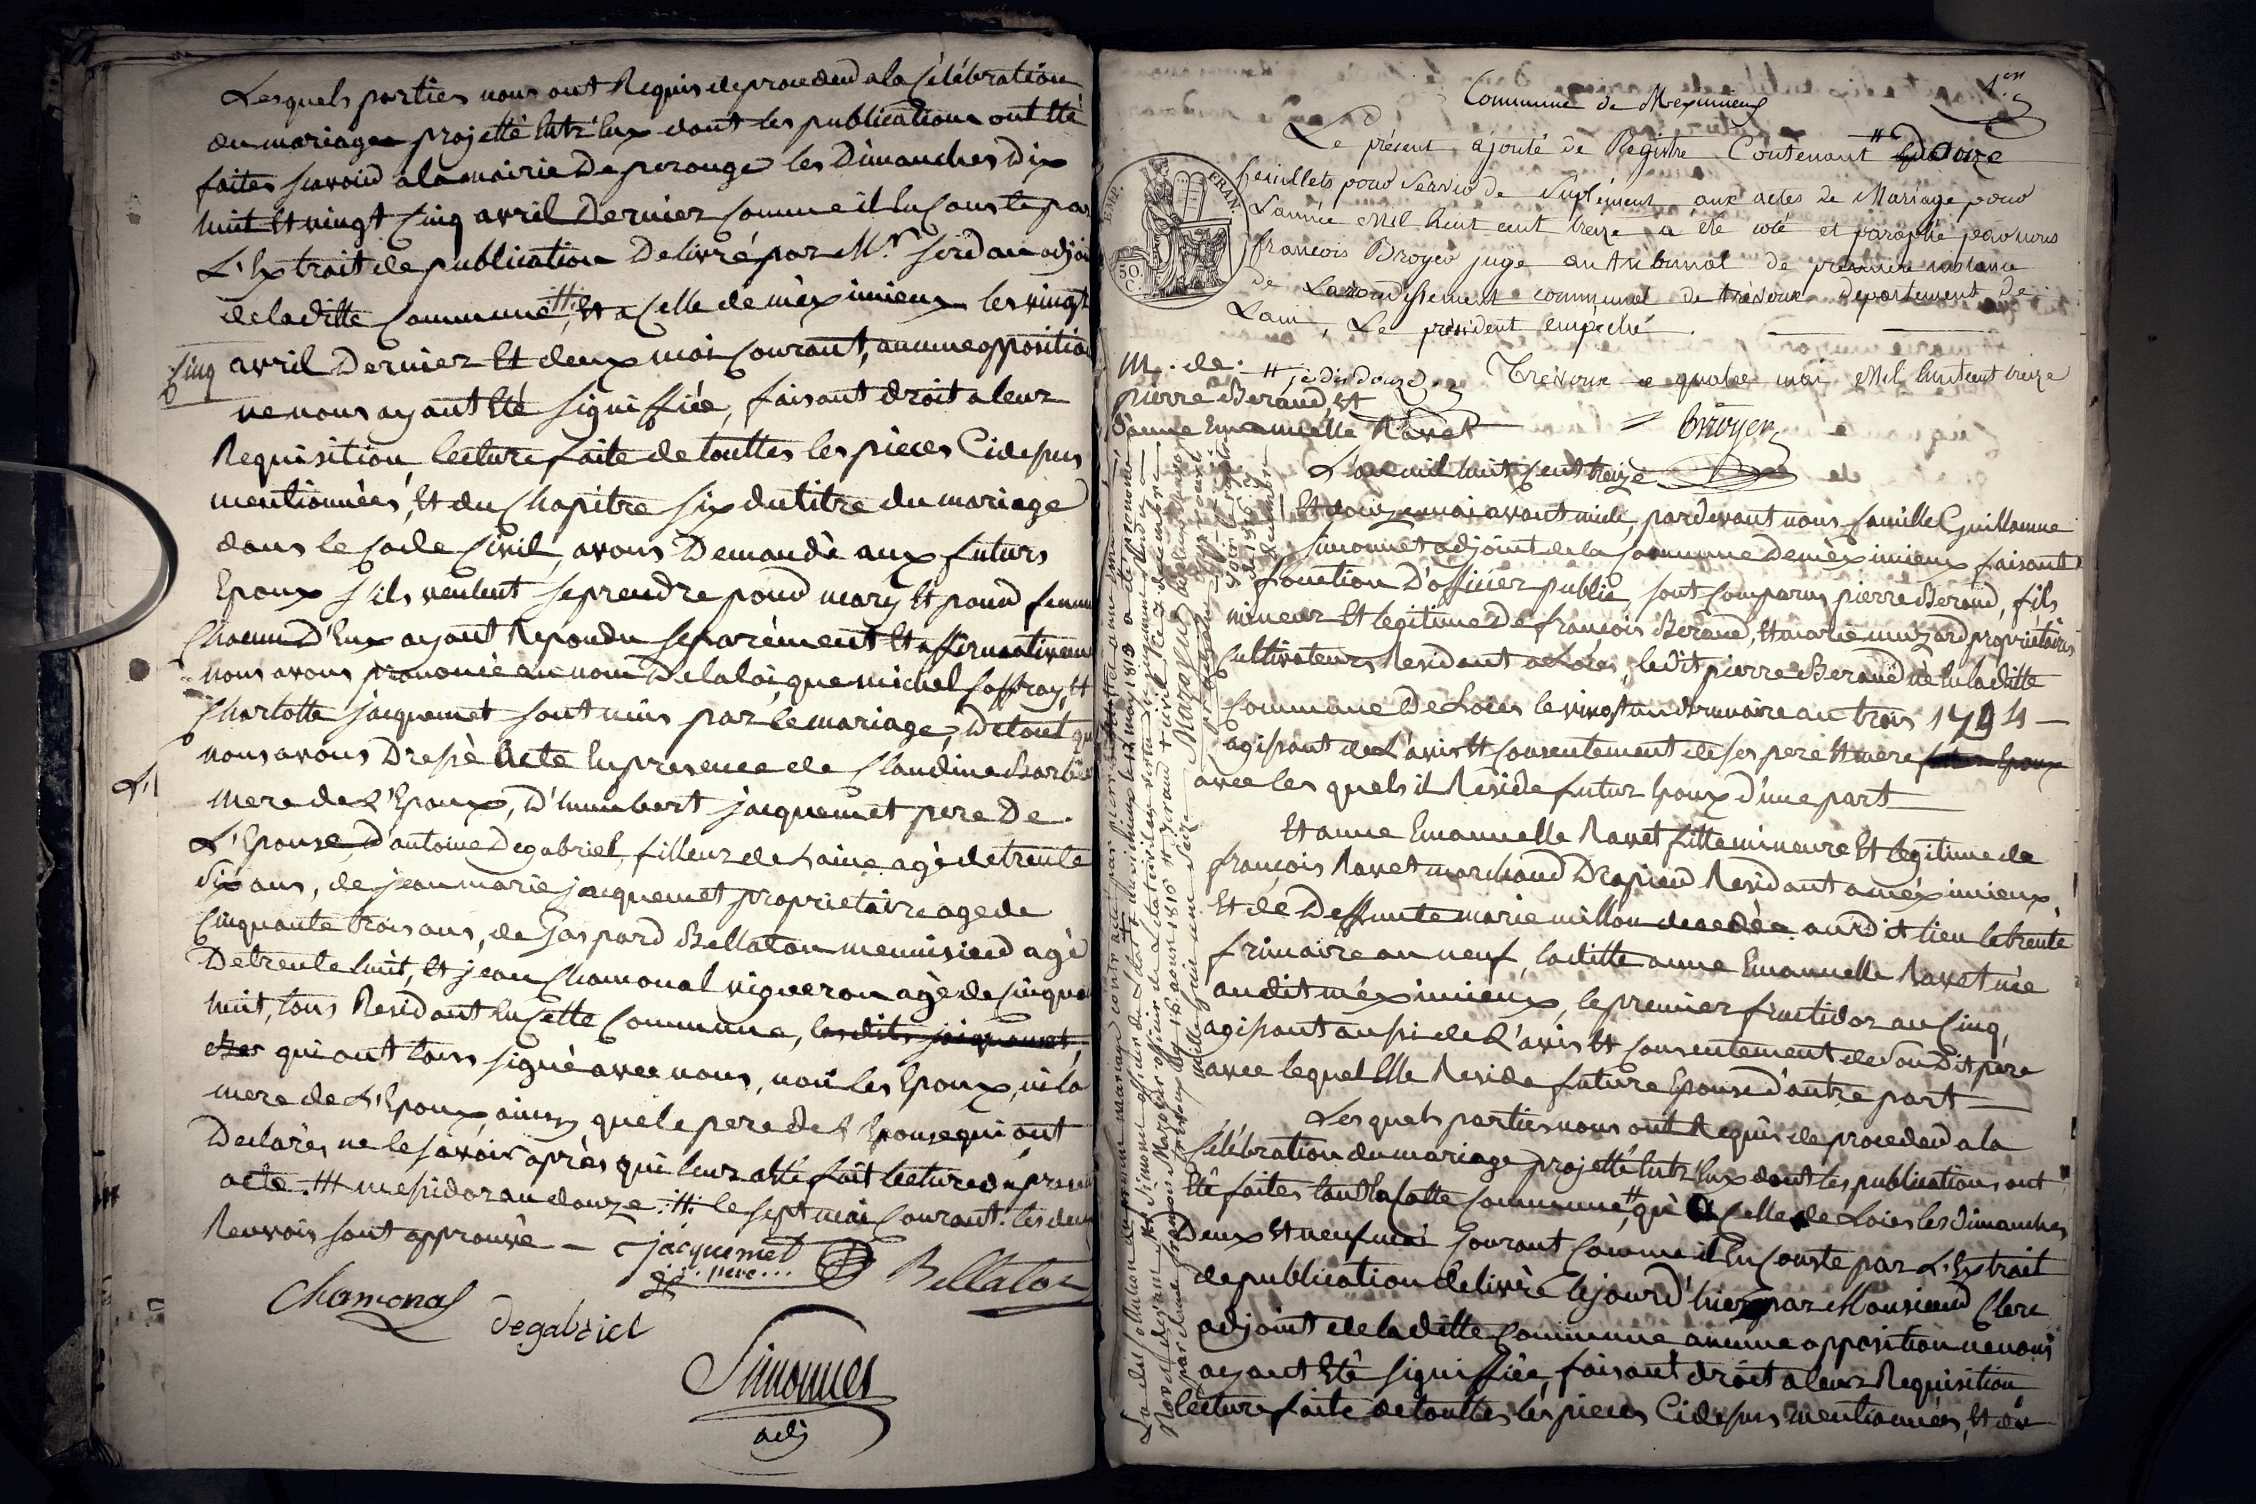 Lesquels parties nous ont Requis de proceder a la Célébration
du mariage projetté Entr'Eux dont les publications ont Eté
faites scavoir a la mairie De perouge les Dimanches Dix
huit Et vingt Cinq avril Dernier comme il En Conste par
L'Extrait de publication Delivré par Mr. jordan adjoi
de la ditte Commune, Et a Celle de mèximieux les vingt
Cinq avril Dernier Et deux mai Courant, aucune oppositio
ne nous ayant Eté signiffiée, faisant droit a leur
Requisition lecture faite de touttes les pieces Cidessus
mentionnées, Et du Chapitre six du titre du mariage
dans le Code Civil, avons Demandé aux futurs
Epoux s'ils veulent se prendre pour mary Et pour femme
Chacun D'Eux ayant Repondu separément Et affirmativeme
nous avons prononcé au nom De la loi, que michel Coffray, Et
Charlotte jacquemet sont unis par le mariage, De tout qu
nous avons Dressé Acte En presence de Claudine Barbi
mere de L'Epoux, D'humbert jacquemet pere De
L'Epouse, D'antoine Degabriel, filleur de Laine agé de trente
Six ans, de jean marie jacquemet proprietaire agé de
Cinquante trois ans, de Gaspard Bellaton menuisier agé
De trente huit, Et jean Chamonal vigneron agé de Cinqua
huit, tous Residant En Cette Commune, les dits jacquemet,
qui ont tous signé avec nous, non les Epoux, ni la
mere de L'Epoux ainsy que le pere de L'Epouse qui ont
Declarés ne le savoir après que leur a Eté fait lecture du prese
acte. ### messidor an douze. .#. le sept mai Courant. les deux
Renvois sont approuvé —
jacquemet
pere
Bellaton
Chamonal
degabriel
Simonnet
adj
1.er
Commune de Meximieux
Le présent ajouté de Registre Contenant # quatorze
feuillets pour Servir de Suplément aux actes de Mariage pour
L'année Mil huit cent treize a été coté et paraphé par nous
françois Broyer juge au tribunal de première instance
de Larrondissement communal de trévoux departement de
Lain, Le président empêché.
EMP. FRAN.
50 C.
# je dis douze.
Trévoux ce quatre mai Mil huit cent treize
Broyer
M. de.
pierre Beraud, Et
anne Emanuelle Ravet
L'an mil huit Cent treize
Et mai avant midi, pardevant nous Camille Guillaume
Simonnet adjoint de la Commune De mèximieux faisant
fonction D'officier public sont Comparus pierre Beraud, fils
mineur Et legitime De françois Beraud, Et marie muzard proprietaires
Cultivateurs Residant a Loies, ledit pierre Beraud né En la ditte
Commune De Loies le vingt un brumaire an trois 1794 —
agissant de L'avis Et Consentement de ses pere Et mere futur Epoux
avec les quels il Reside futur Epoux d'une part —
Et anne Emanuelle Ravet fille mineure Et legitime de
françois Ravet marchand Drapier Residant a méximieux
Et de Deffunte marie millon decedée audit lieu le trente
frimaire an neuf, laditte anne Emanuelle Ravet née
audit méximieux, le premier fructidor an Cinq,
agissant aussi de L'avis Et Consentement de son Dit pere
avec lequel Elle Reside future Epouse d'autre part —
Lesquels parties nous ont Requis de proceder a la
Célébration du mariage projetté Entr'Eux dont les publications ont
Eté faites tant En Cette Commune, qu'a Celle de Loies les Dimanches
Deux Et neuf mai Courant Comme il En Conste par L'Extrait
de publication delivré le jour D'hier par Monsieur Clerc
adjoint de la ditte Commune aucune opposition ne nous
ayant Eté signiffiée, faisant droit a leur Requisition
lecture faite de touttes les pieces Cidessus mentionnées, Et du